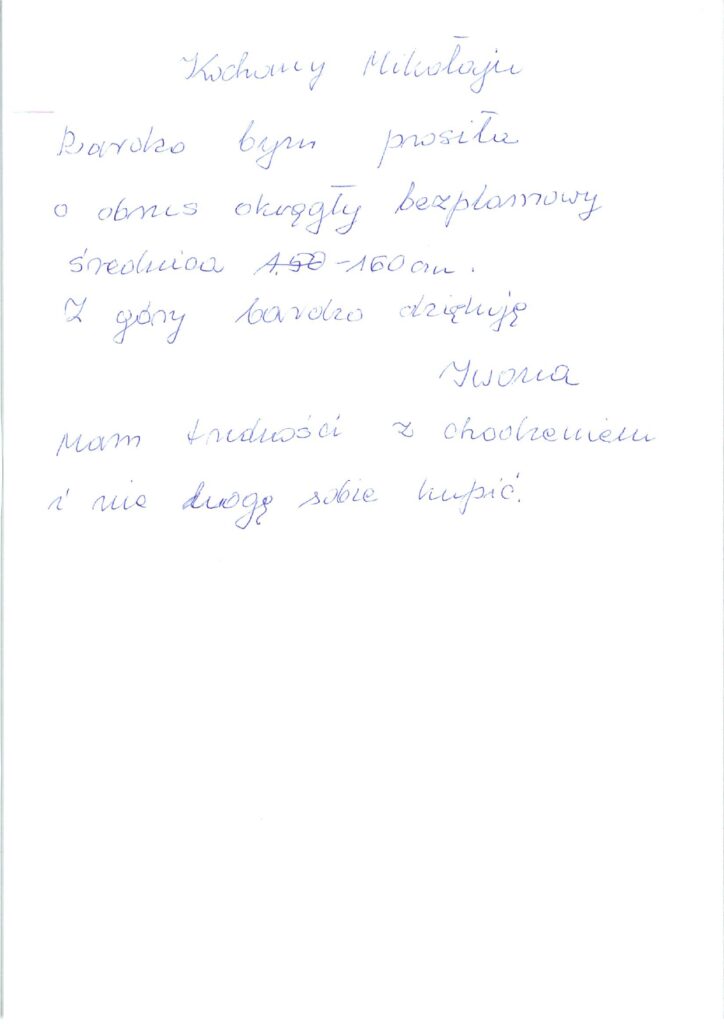 Kochany Mikołaju
Bardzo bym prosiła
o obrus okrągły bezplamowy
średnica 1.50-160cm.
Z góry bardzo dziękuję
Iwona
Mam trudności z chodzeniem
i nie mogę sobie kupić.